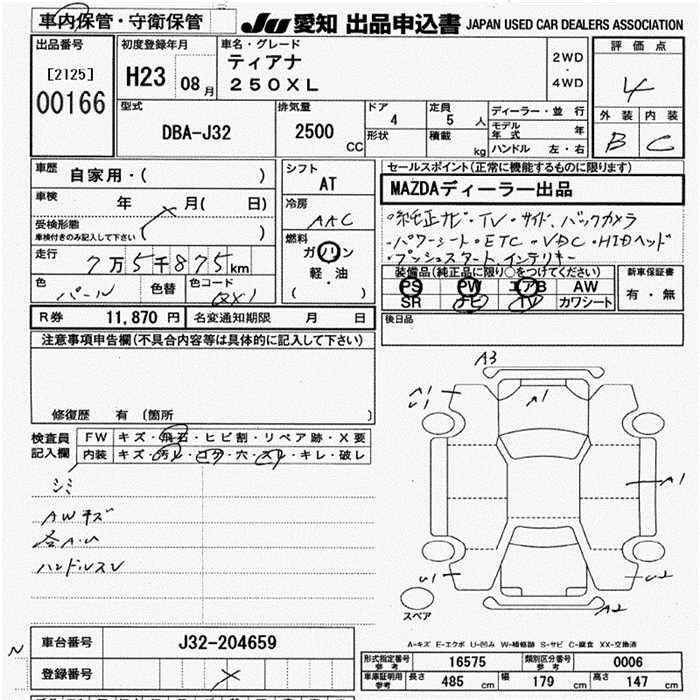 車内保管・守衛保管 JU 愛知 出品申込書 JAPAN USED CAR DEALERS ASSOCIATION
出品番号
[2125]
00166
初度登録年月
H23 08月
車名・グレード
ティアナ
250XL
2WD
・
4WD
評価点
4
外装 内装
B C
型式
DBA-J32
排気量
2500 CC
ドア
4
形状
定員
5 人
積載
kg
ディーラー・並行
モデル年式 年
ハンドル 左・右
車歴
自家用・( )
車検 年 月( 日)
受検形態
車検付きのみ記入して下さい ( )
走行 7万5千875km
色 パール 色替 色コード QX1
シフト
AT
冷房
AAC
燃料
ガソリン
軽・油
( )
セールスポイント(正常に機能するものに限ります)
MAZDAディーラー出品
・純正ナビ・TV・サイド、バックカメラ
・パワーシート・ETC・VDC・HIDヘッド
・プッシュスタート、インテリキー
装備品(純正品に限り○をつけてください)
PS PW エアB AW
SR ナビ TV カワシート
新車保証書
有・無
後日品
R券 11,870円 名変通知期限 月 日
注意事項申告欄(不具合内容等は具体的に記入して下さい)
修復歴 有〔箇所 〕
検査員記入欄
FW キズ・飛石・ヒビ割・リペア跡・X要
内装 キズ・汚レ・コゲ・穴・スレ・キレ・破レ
シミ
AWキズ
各A・U
ハンドルスレ
A3
A1
U1
A1
A1
U1
U2
A2
スペア
A-キズ E-エクボ U-凹み W-補修跡 S-サビ C-腐食 XX-交換済
N
車台番号 J32-204659
登録番号
形式指定番号 参考 16575 類別区分番号 参考 0006
車庫証明用 参考 長さ 485 cm 幅 179 cm 高さ 147 cm